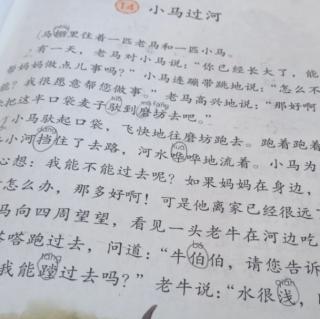 14 小马过河
马棚里住着一匹老马和一匹小马。
有一天，老马对小马说：“你已经长大了，能
帮妈妈做点儿事吗？”小马连蹦带跳地说：“怎么不
能？我很愿意帮您做事。”老马高兴地说：“那好啊
把这半口袋麦子驮到磨坊去吧。”
小马驮起口袋，飞快地往磨坊跑去。跑着跑着
小河挡住了去路，河水哗哗地流着。小马为
心想：我能不能过去呢？如果妈妈在身边，
怎么办，那多好啊！可是他离家已经很远
马向四周望望，看见一头老牛在河边吃
嗒嗒跑过去，问道：“牛伯伯，请您告诉
我能蹚过去吗？”老牛说：“水很浅，